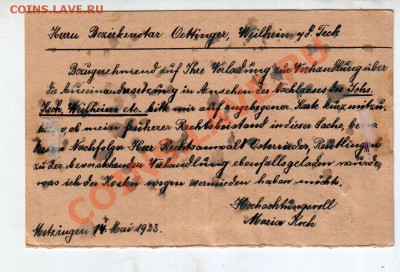 COINS.LENS.RU
Herrn Bezirksnotar Oettinger, Weilheim y/S. Teck
Bezugnehmend auf Ihre Vorladung zur Verhandlung über
die Auseinandersetzung in Ansehen des Nachlasses des Johs.
Koch, Weilheim etc. bitte mir auf angebogener Karte kurz mitzu-
ob mein früherer Rechtsbeistand in dieser Sache,
Nachfolger Herr Rechtsanwalt Osterrieder, Reutlingen
zu der bevorstehenden Verhandlung ebenfalls geladen wurde,
was ich der Kosten wegen vermieden haben möcht.
Hochachtungsvoll
Metzingen 14. Mai 1923.
Maria Koch